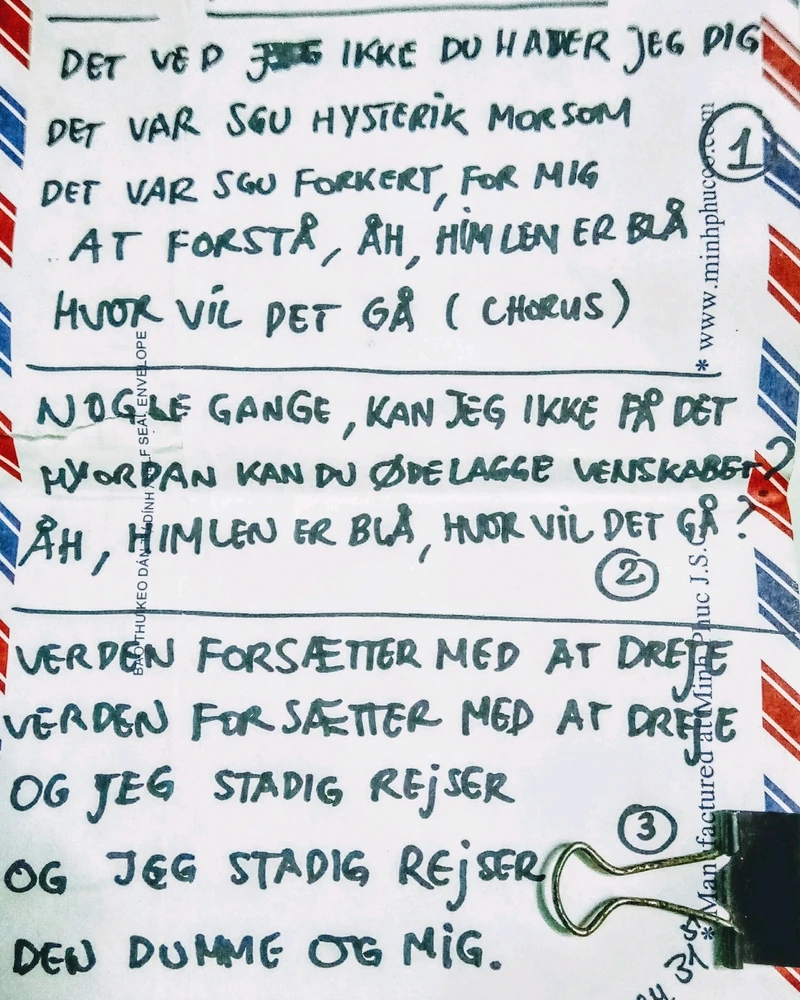 DET VED JEG IKKE DU HADER JEG DIG
DET VAR SGU HYSTERIK MORSOM
1
DET VAR SGU FORKERT, FOR MIG
AT FORSTÅ, ÅH, HIMLEN ER BLÅ
HVOR VIL DET GÅ (CHORUS)
NOGLE GANGE, KAN JEG IKKE FÅ DET
HVORDAN KAN DU ØDELAGGE VENSKABET?
ÅH, HIMLEN ER BLÅ, HVOR VIL DET GÅ?
2
VERDEN FORSÆTTER MED AT DREJE
VERDEN FORSÆTTER MED AT DREJE
OG JEG STADIG REJSER
3
OG JEG STADIG REJSER
DEN DUMME OG MIG.
* www.minhphucco.com
* Manufactured at Minh Phuc J.S.C
SELF SEAL ENVELOPE